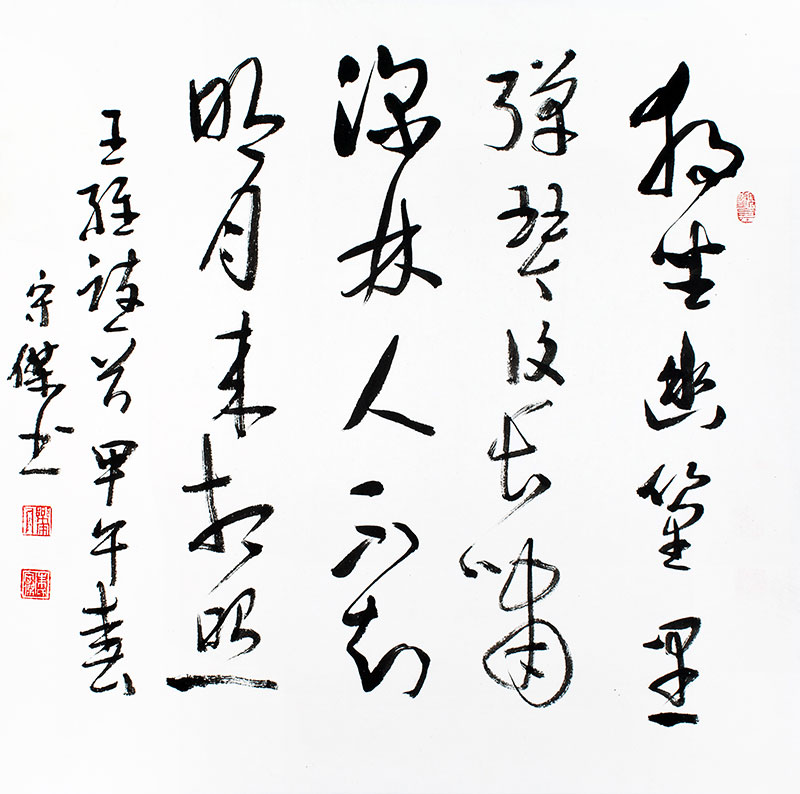 独坐幽篁里
弹琴复长啸
深林人不知
明月来相照
王维诗一首甲午春
守傑书